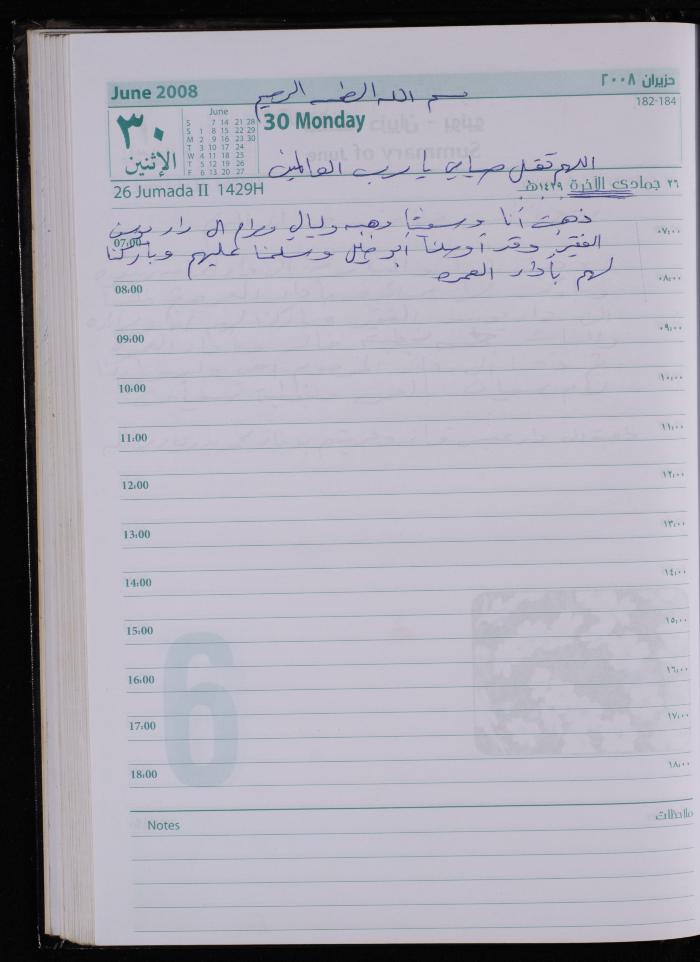 June 2008
حزيران ٢٠٠٨
بسم الله الرحمن الرحيم
182-184
٣٠
الإثنين
June
S 7 14 21 28
S 1 8 15 22 29
M 2 9 16 23 30
T 3 10 17 24
W 4 11 18 25
T 5 12 19 26
F 6 13 20 27
30 Monday
اللهم تقبل صيامي يا رب العالمين
26 Jumada II 1429H
٢٦ جمادى الآخرة ١٤٢٩هـ
ذهبت أنا و وهبه وليالي ومرام الى دار
07:00
٠٧:٠٠
الفقير وقد أوصلنا أبو وسلمنا عليهم وباركنا
لهم بأداء العمره
08:00
٠٨:٠٠
09:00
٠٩:٠٠
10:00
١٠:٠٠
11:00
١١:٠٠
12:00
١٢:٠٠
13:00
١٣:٠٠
14:00
١٤:٠٠
15:00
١٥:٠٠
16:00
١٦:٠٠
17:00
١٧:٠٠
18:00
١٨:٠٠
6
Notes
ملاحظات